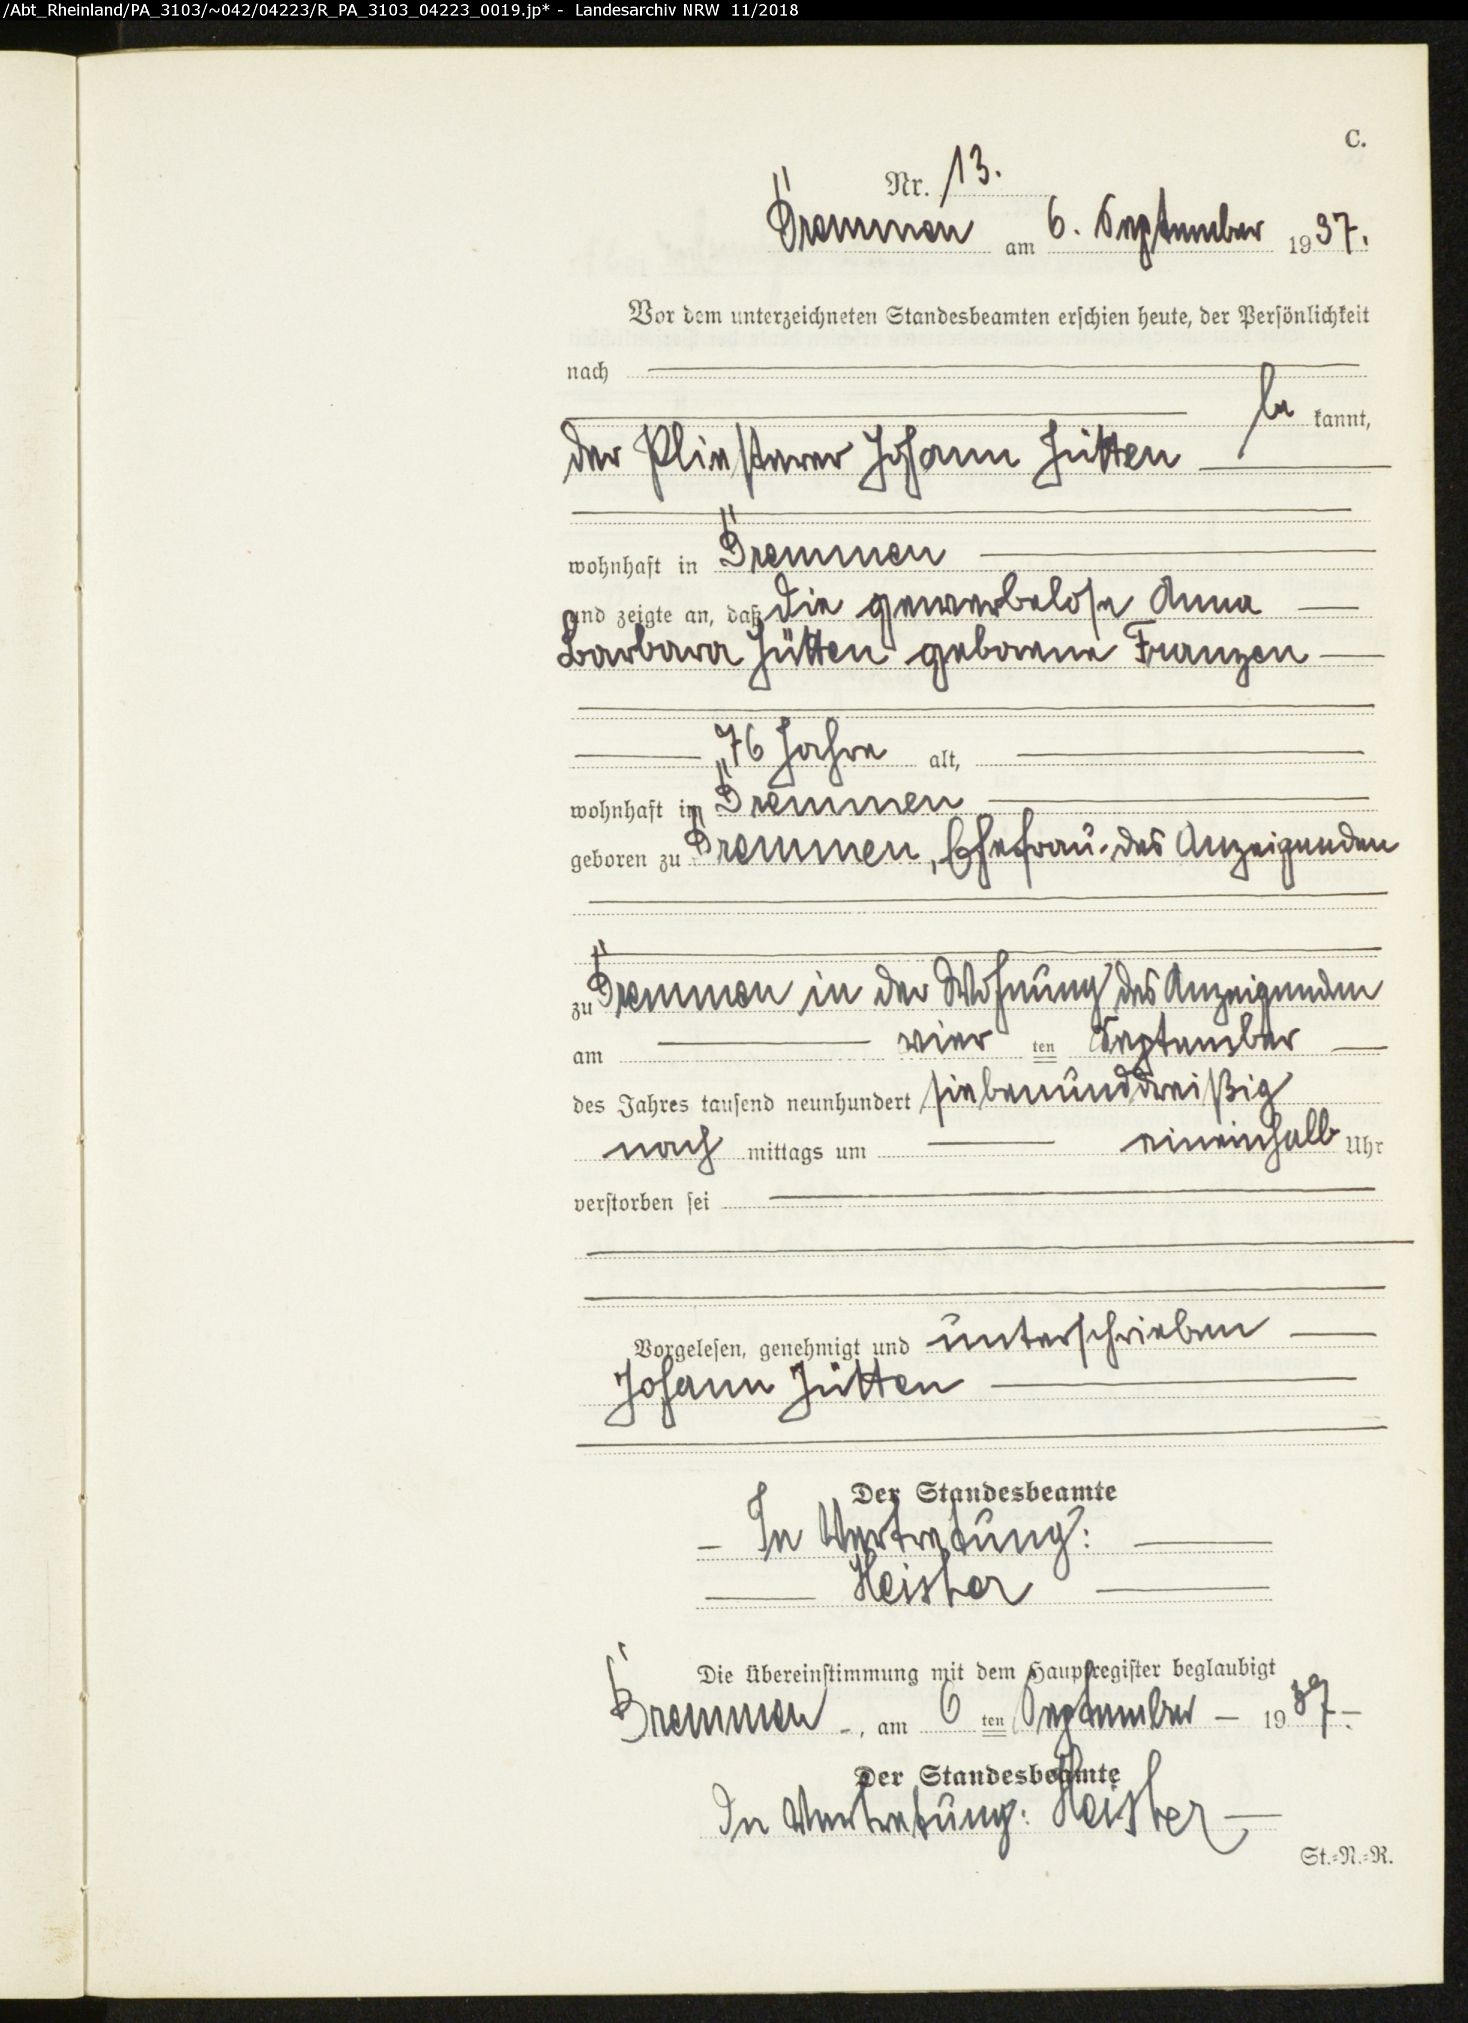 /Abt_Rheinland/PA_3103/~042/04223/R_PA_3103_04223_0019.jp* - Landesarchiv NRW 11/2018
C.
Nr. 13.
Dremmen am 6. September 1937.
Vor dem unterzeichneten Standesbeamten erschien heute, der Persönlichkeit
nach
be kannt,
der Pliesterer Johann Jütten
wohnhaft in Dremmen
und zeigte an, daß die gewerbelose Anna
Barbara Jütten geborene Franzen
76 Jahre alt,
wohnhaft in Dremmen
geboren zu Dremmen, Ehefrau des Anzeigenden
zu Dremmen in der Wohnung des Anzeigenden
am vier ten September
des Jahres tausend neunhundert siebenunddreißig
nach mittags um eineinhalb Uhr
verstorben sei
Vorgelesen, genehmigt und unterschrieben
Johann Jütten
Der Standesbeamte
In Vertretung:
Heister
Die Übereinstimmung mit dem Hauptregister beglaubigt
Dremmen, am 6 ten September 1937
Der Standesbeamte
In Vertretung: Heister
St.=N.=R.